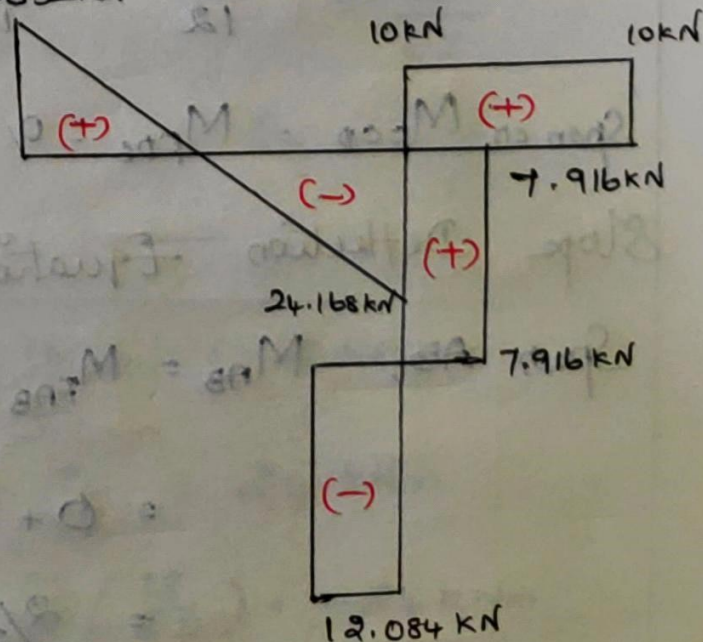 10kN 10kN
(+) (+)
7.916kN
(-) (+)
24.168kN
7.916 kN
(-)
12.084 KN